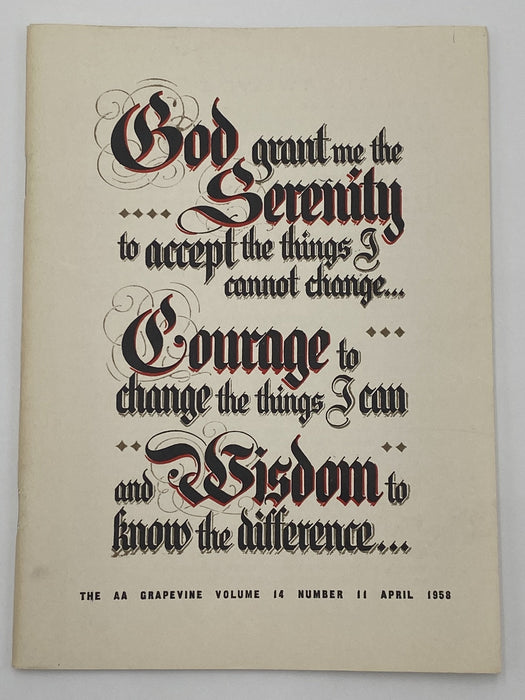 God grant me the
Serenity
to accept the things I
cannot change...
Courage to
change the things I can
and Wisdom to
know the difference...
THE AA GRAPEVINE VOLUME 14 NUMBER 11 APRIL 1958